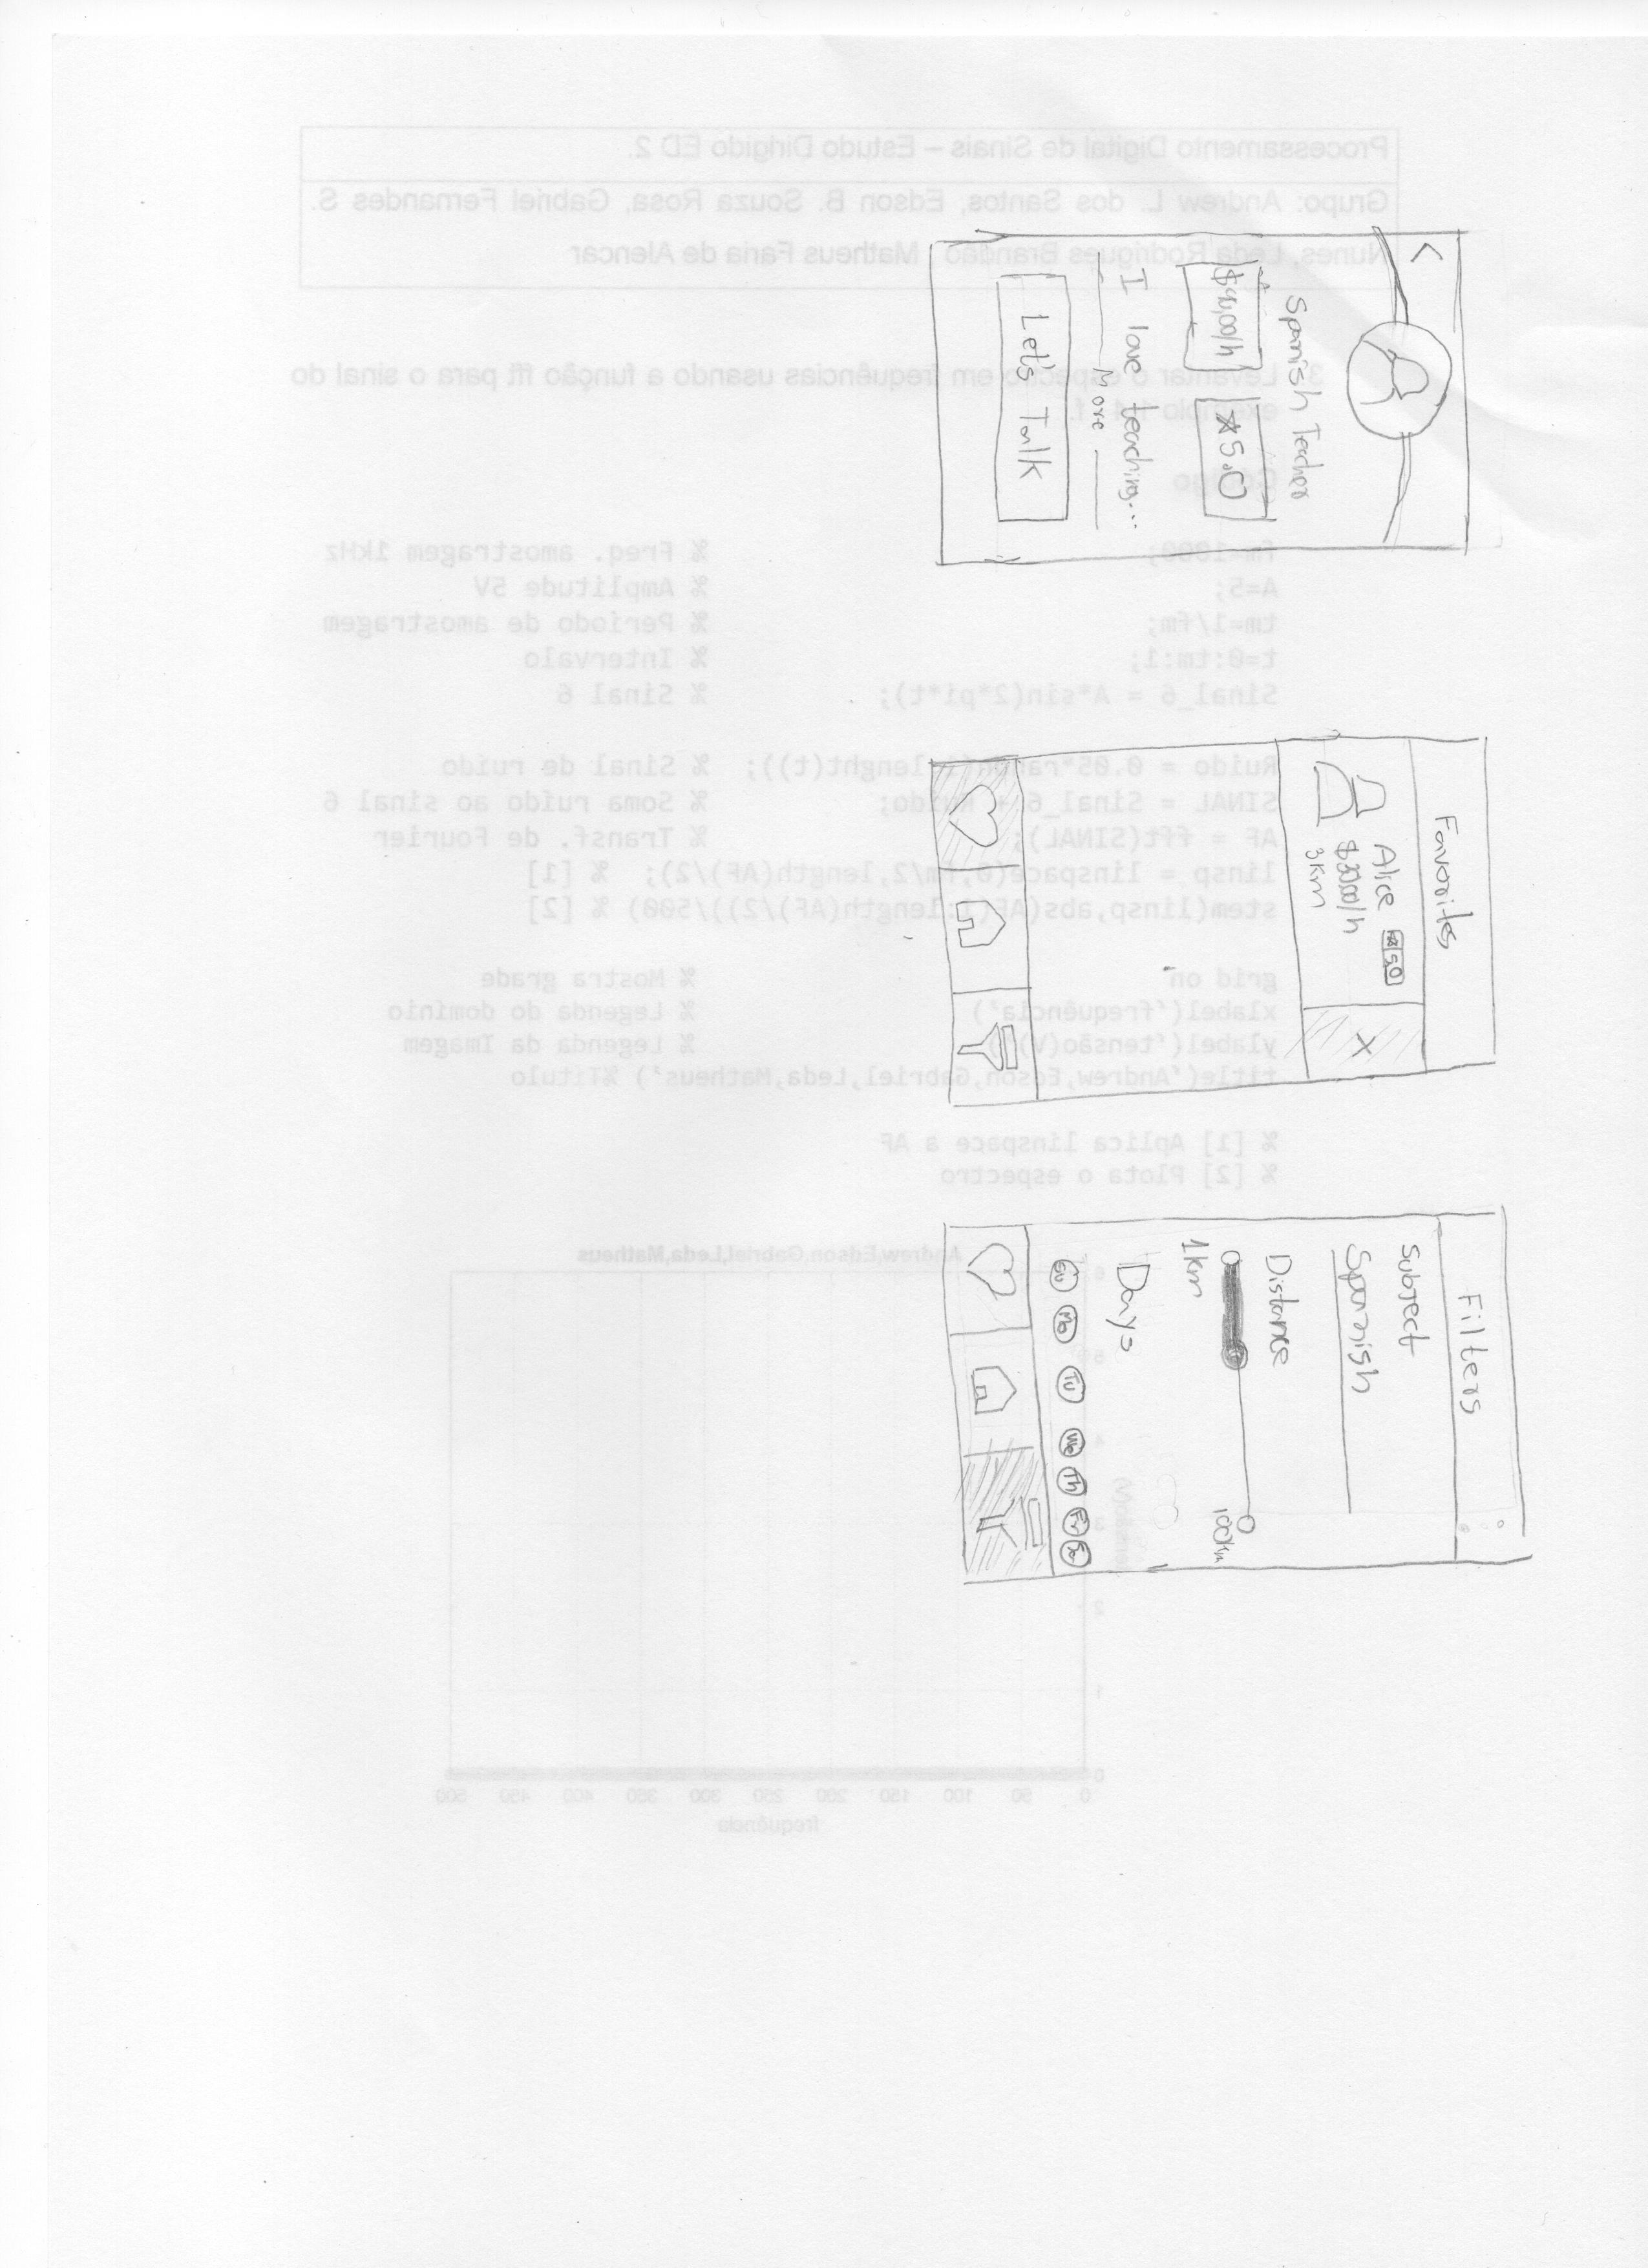 <
Spanish Teacher
$40,00/h
★5.0
I love teaching...
More
Let's Talk
Favorites
Alice ★5.0
$20,00/h
3km
X
Filters
Subject
Spanish
Distance
1km
100km
Days
Su Mo Tu We Th Fr Sa
Processamento Digital de Sinais – Estudo Dirigido ED 2.
Grupo: Andrew L. dos Santos, Edson B. Souza Rosa, Gabriel Fernandes S.
Nunes, Leda Rodrigues Brandão, Matheus Faria de Alencar
Levantar o espectro em frequências usando a função fft para o sinal do
exemplo
Código
fm=1000; % Freq. amostragem 1kHz
A=5; % Amplitude 5V
tm=1/fm; % Período de amostragem
t=0:tm:1; % Intervalo
Sinal_6 = A*sin(2*pi*t); % Sinal 6
Ruido = 0.05* lenght(t)); % Sinal de ruído
SINAL = Sinal_6 + Ruido; % Soma ruído ao sinal 6
AF = fft(SINAL); % Transf. de Fourier
linsp = linspace(0,fm/2,length(AF)/2); % [1]
stem(linsp,abs(AF(1:length(AF)/2))/500) % [2]
grid on % Mostra grade
xlabel('frequência') % Legenda do domínio
ylabel('tensão(V)') % Legenda da Imagem
title('Andrew,Edson,Gabriel,Leda,Matheus') %Título
% [1] Aplica linspace a AF
% [2] Plota o espectro
Andrew,Edson,Gabriel,Leda,Matheus
6
5
4
3
2
1
0
0 50 100 150 200 250 300 350 400 450 500
frequência